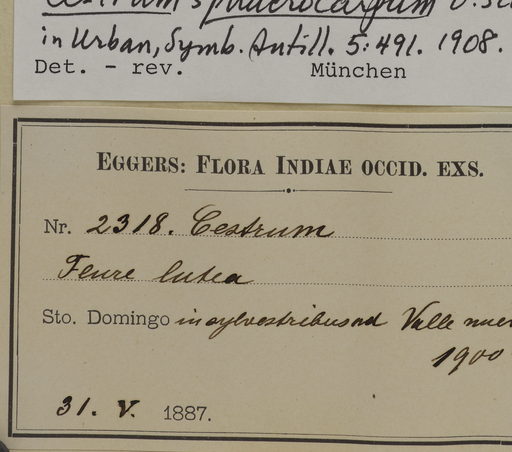 Cestrum sphaerocarpum O. Sch
in Urban, Symb. Antill. 5: 491. 1908.
Det. - rev. München
EGGERS: FLORA INDIAE OCCID. EXS.
Nr. 2318. Cestrum
lutea
Sto. Domingo in sylvestribus ad Valle nuev
1900
31. V. 1887.